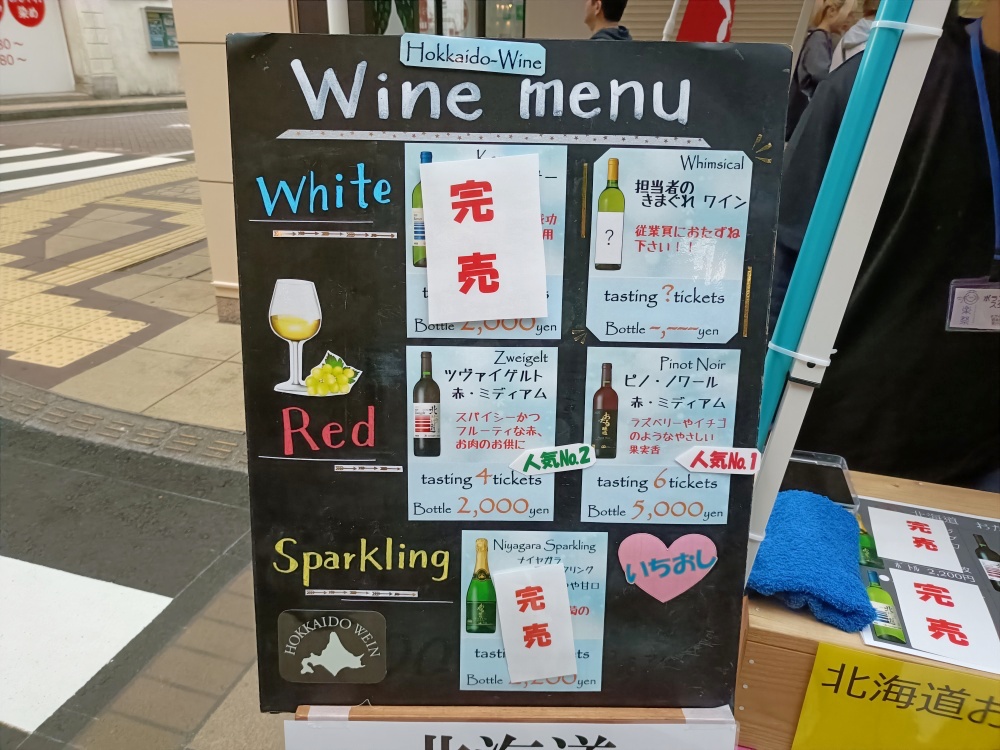 Hokkaido-Wine
Wine menu
White
完
売
Bottle 2,000yen
Whimsical
担当者の
きまぐれ ワイン
従業員におたずね
下さい!!
?
tasting ?tickets
Bottle ~,~~~yen
Red
Zweigelt
ツヴァイゲルト
赤・ミディアム
スパイシーかつ
フルーティな赤、
お肉のお供に
人気No.2
tasting 4tickets
Bottle 2,000yen
Pinot Noir
ピノ・ノワール
赤・ミディアム
ラズベリーやイチゴ
のようなやさしい
果実香
人気No.1
tasting 6tickets
Bottle 5,000yen
Sparkling
Niyagara Sparkling
ナイヤガラ
や甘口
完
売
Bottle
yen
いちおし
HOKKAIDO WEIN
北海道
完
売
ボトル 2,200円
完
売
北海道お
染め